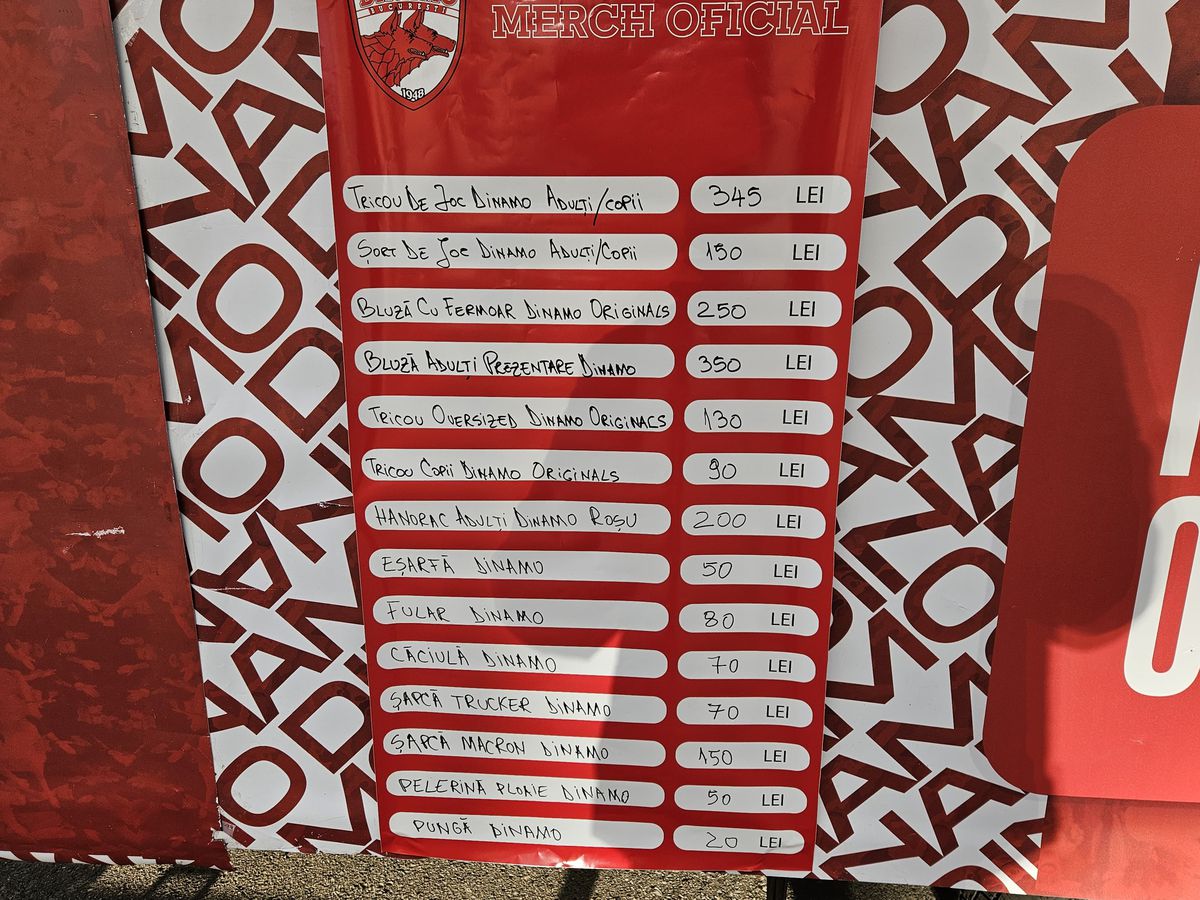 BUCUREȘTI
1948
MERCH OFICIAL
TRICOU DE JOC DINAMO ADULȚI/COPII 345 LEI
ȘORT DE JOC DINAMO ADULȚI/COPII 150 LEI
BLUZĂ CU FERMOAR DINAMO ORIGINALS 250 LEI
BLUZĂ ADULȚI PREZENTARE DINAMO 350 LEI
TRICOU OVERSIZED DINAMO ORIGINALS 130 LEI
TRICOU COPII DINAMO ORIGINALS 90 LEI
HANORAC ADULȚI DINAMO ROȘU 200 LEI
EȘARFĂ DINAMO 50 LEI
FULAR DINAMO 80 LEI
CĂCIULĂ DINAMO 70 LEI
ȘAPCĂ TRUCKER DINAMO 70 LEI
ȘAPCĂ MACRON DINAMO 150 LEI
PELERINĂ PLOAIE DINAMO 50 LEI
PUNGĂ DINAMO 20 LEI